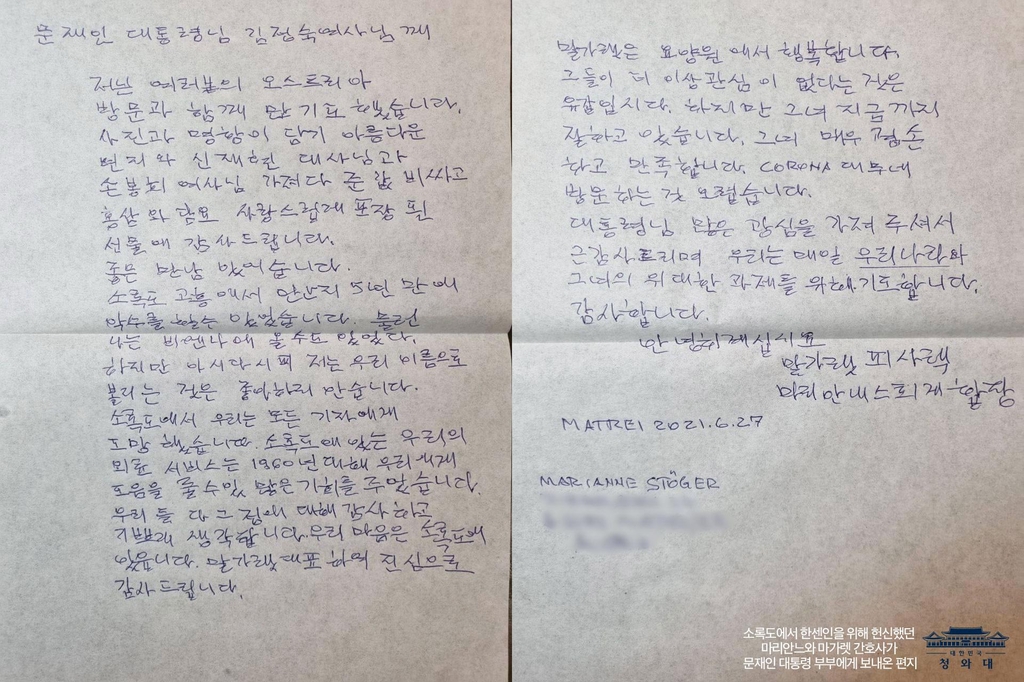 문재인 대통령님 김정숙여사님께
저는 여러분의 오스트리아
방문과 함께 많 기뻐 했습니다.
사진과 명함이 담기 아름다운
편지와 신재현 대사님과
손봉희 여사님 가져다 준 값 비싸고
홍삼와 담요 사랑스럽게 포장 된
선물에 감사드립니다.
좋은 만남 있어습니다.
소록도 고흥에서 만난지 5년 만에
악수를 할수 있었습니다. 물런
나는 비엔나에 올수도 있었다.
하지만 아시다시피 저는 우리 이름으로
불리는 것은 좋아하리 안습니다.
소록도에서 우리는 모든 기자에게
도망 했습니다. 소록도에 있는 우리의
서비스는 1960년대해 우리에게
도움을 줄수있 많은 기회를 주었습니다.
우리 둘 다 그 점에 대해 감사하고
기쁘게 생각합니다. 우리 마음은 소록도에
있읍니다. 말가렛 대표하여 진심으로
감사드립니다.
말가렛은 요양원에서 행복합니다.
그들이 더 이상 관심이 없다는 것은
유감입시다. 하지만 그녀 지금까지
잘하고 있습니다. 그녀 매우 겸손
하고 만족합니다. CORONA 대무네
방문하는 것 오렵습니다.
대통령님 많은 관심을 가져 주셔서
큰감사드리며 우리는 매일 우리나라와
그녀의 위대한 과제를 위해 기도합니다.
감사합니다.
안녕히게십시요
말가렛 피사렉
마리안네 스퇴게 합장
MATREI 2021.6.27
MARIANNE STÖGER
소록도에서 한센인을 위해 헌신했던
마리안느와 마가렛 간호사가
문재인 대통령 부부에게 보내온 편지
대한민국
청와대